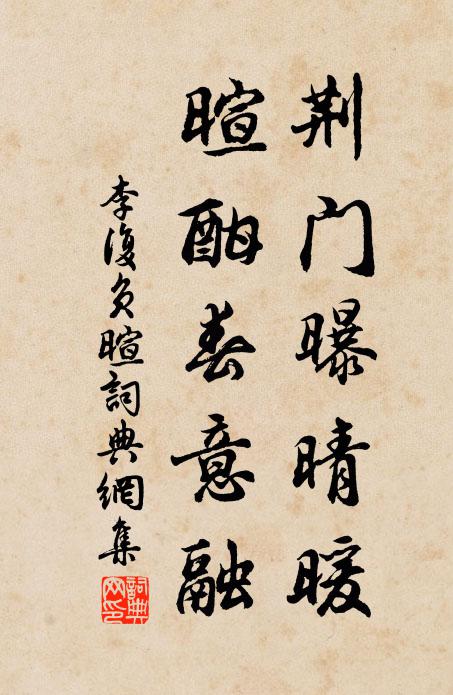 荆门曝晴暖
暄酣春意融
李復负暄詞典網集
詞典网印